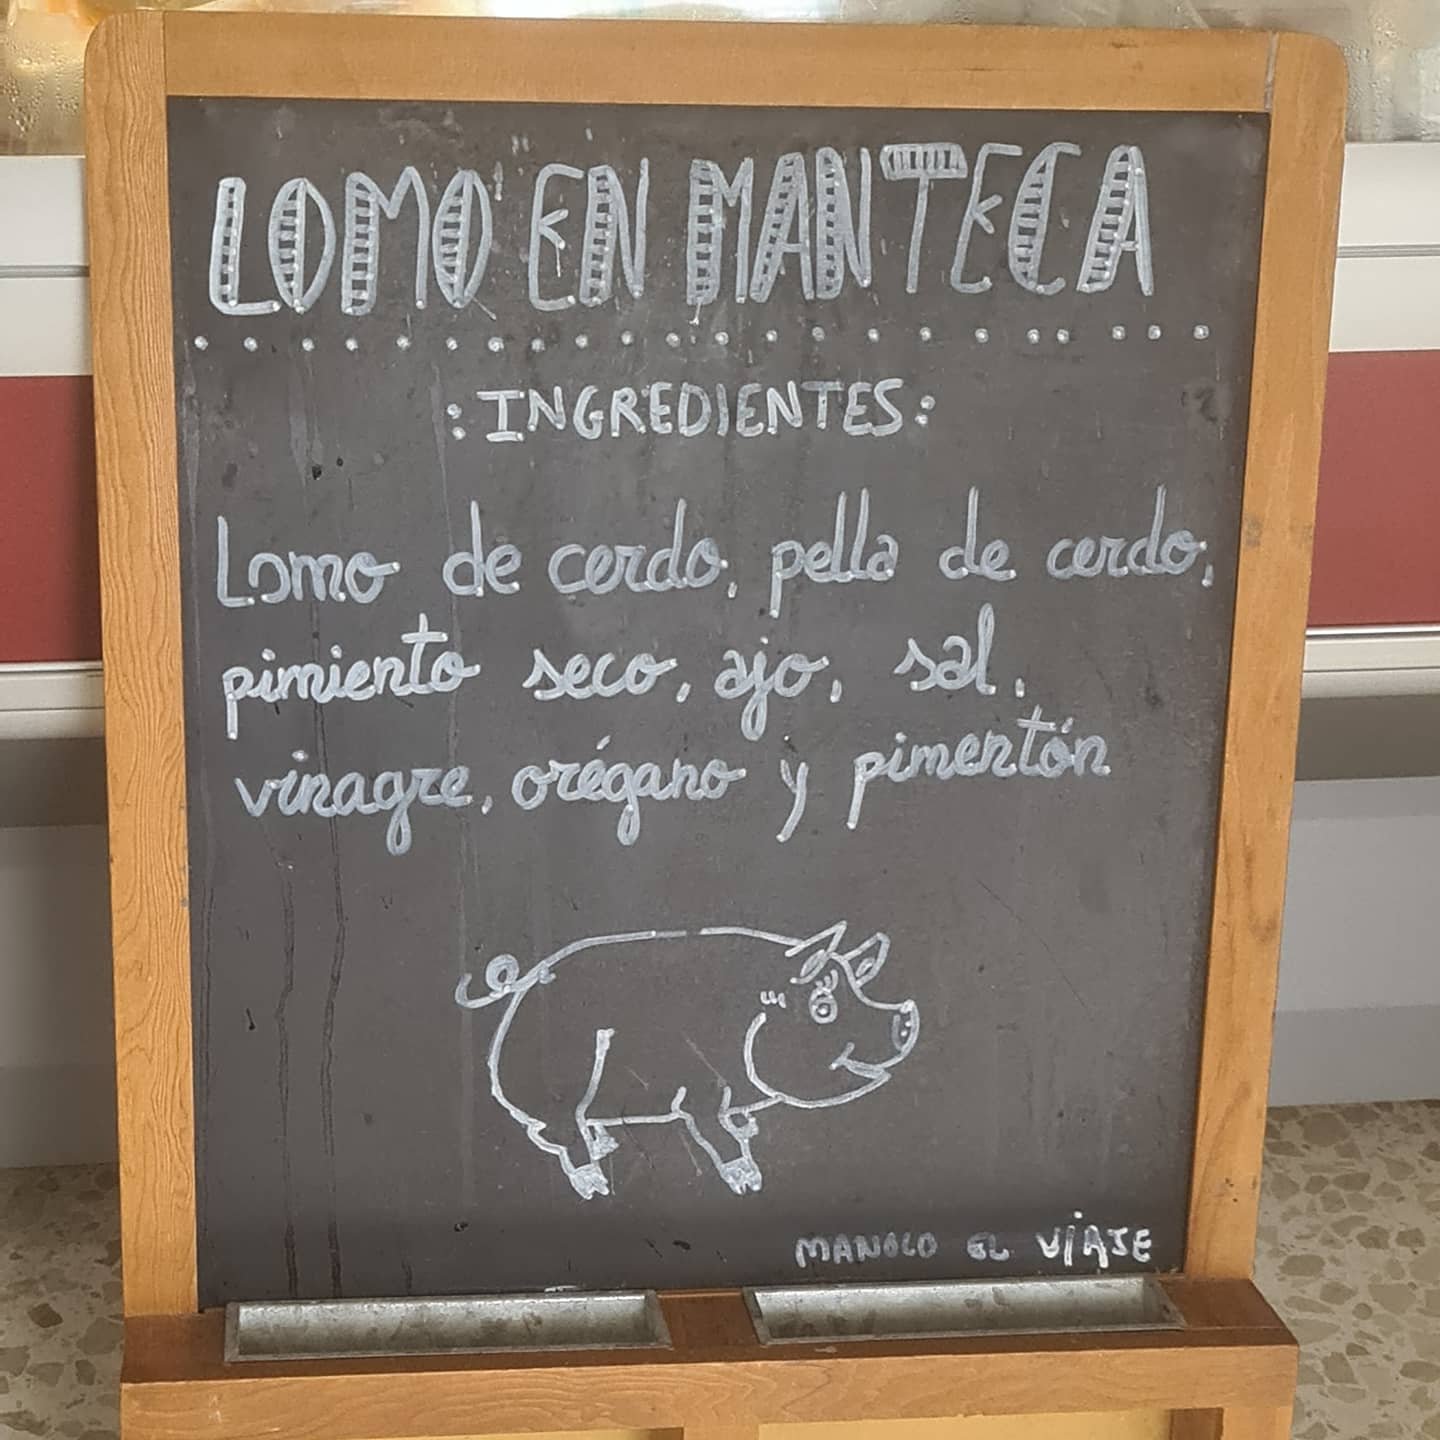 LOMO EN MANTECA
:INGREDIENTES:
Lomo de cerdo, pella de cerdo,
pimiento seco, ajo, sal,
vinagre, orégano y pimentón
MANOLO EL VIAJE